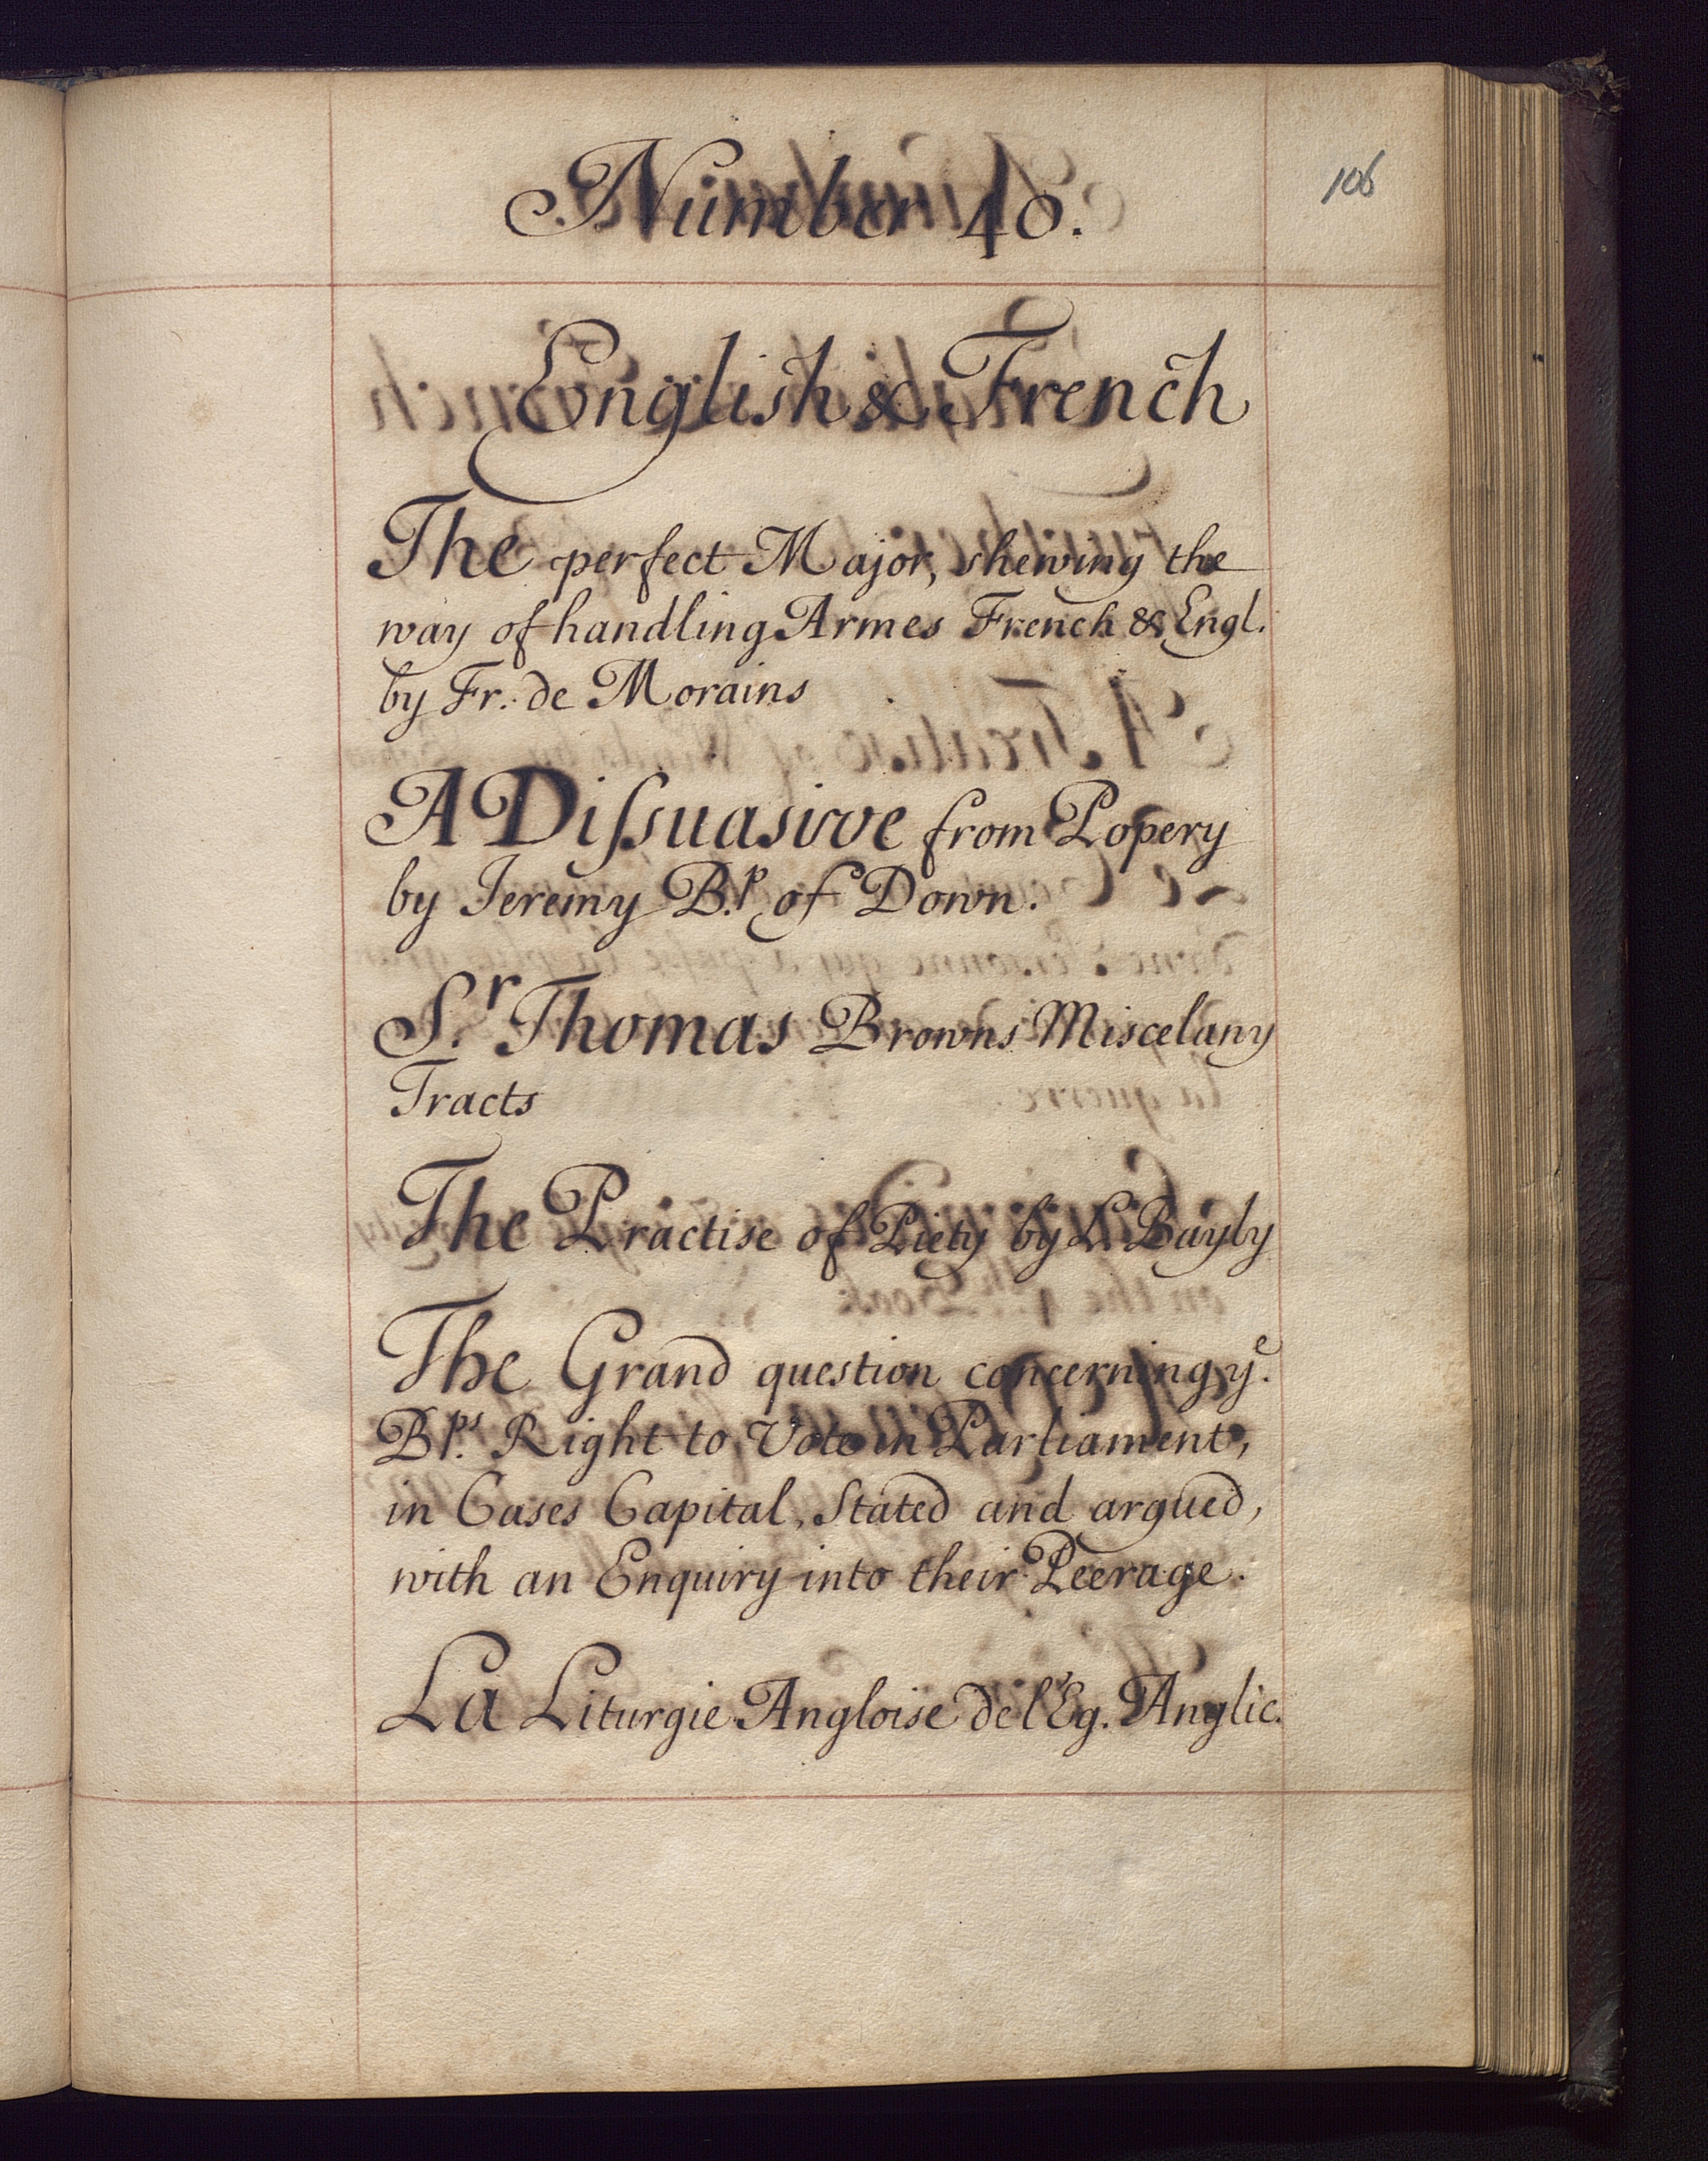 106
Number 40.
English & French
The perfect Major, shewing the
way of handling Armes French & Engl.
by Fr. de Morains
A Diſsuasive from Popery
by Jeremy B.p of Down.
S.r Thomas Browns Miscelany
Tracts
The Practise of Piety by L. Bayly
The Grand question concerning y.e
B.ps Right to Vote in Parliament,
in Cases Capital, Stated and argued,
with an Enquiry into their Peerage.
La Liturgie Angloise de l'Eg. Anglic.